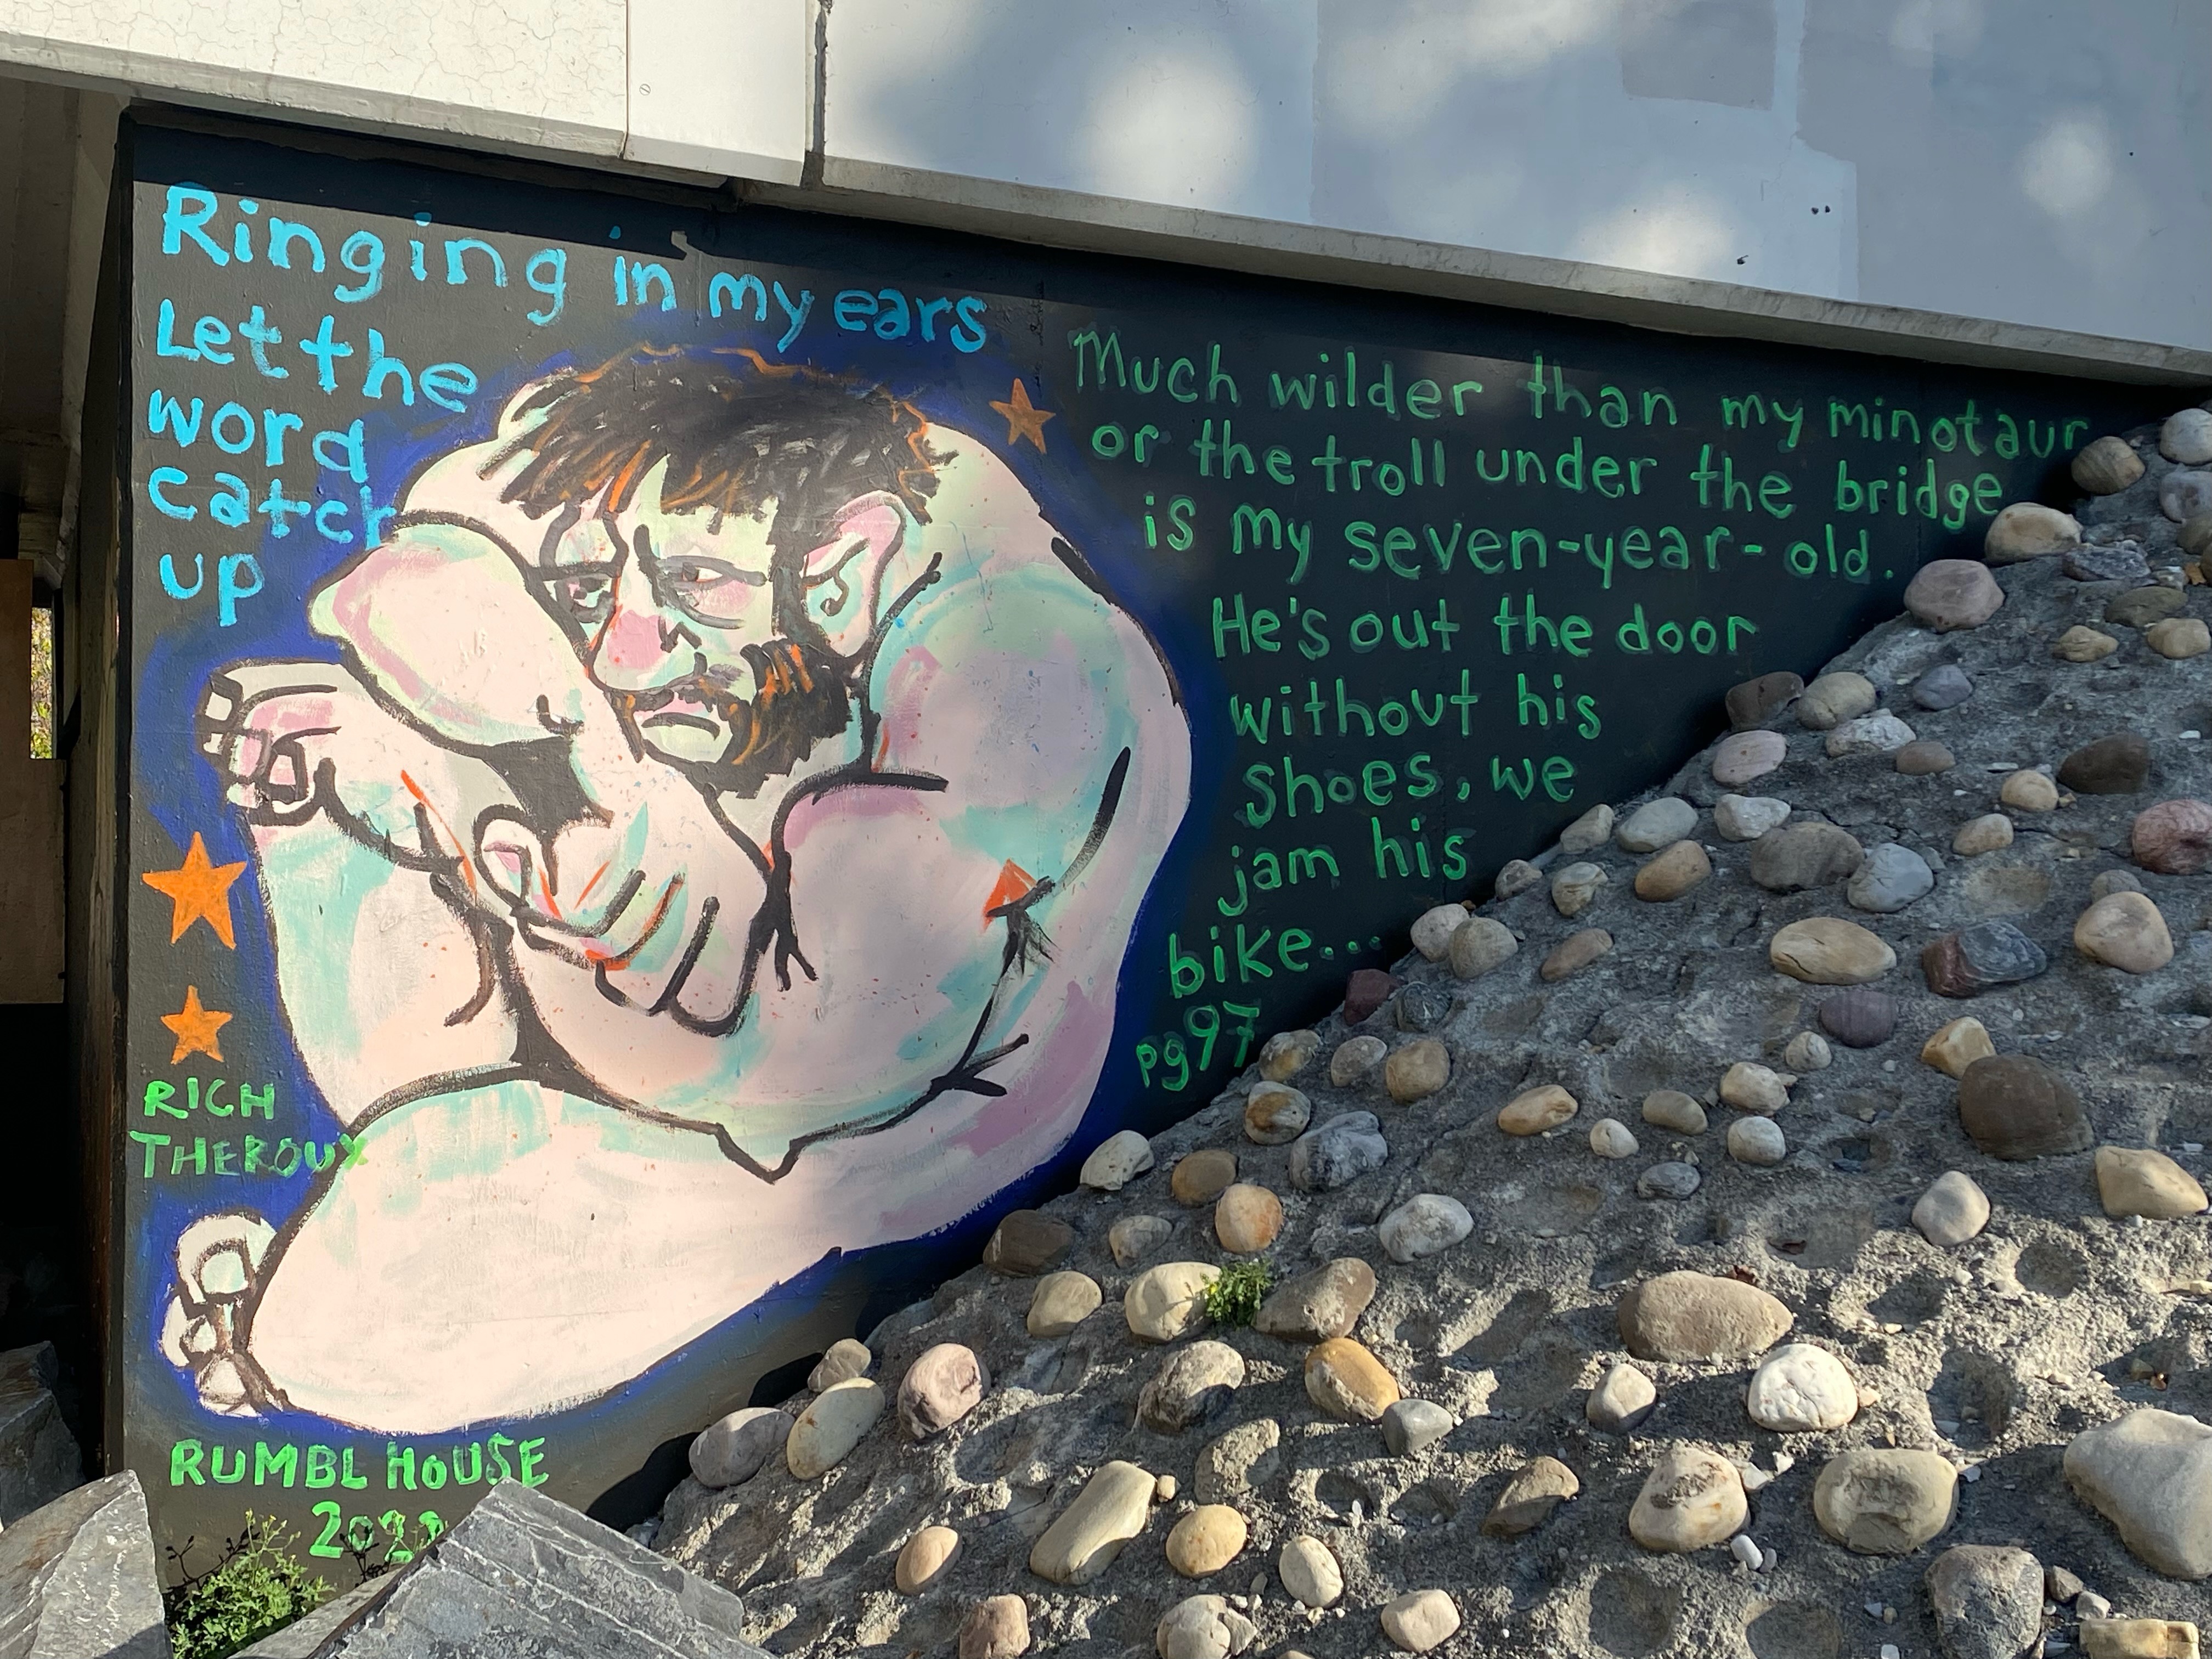 Ringing in my ears
Let the
word
catch
up
Much wilder than my minotaur
or the troll under the bridge
is my seven-year-old.
He's out the door
without his
shoes, we
jam his
bike...
pg97
RICH
THEROUX
RUMBL HOUSE
2022